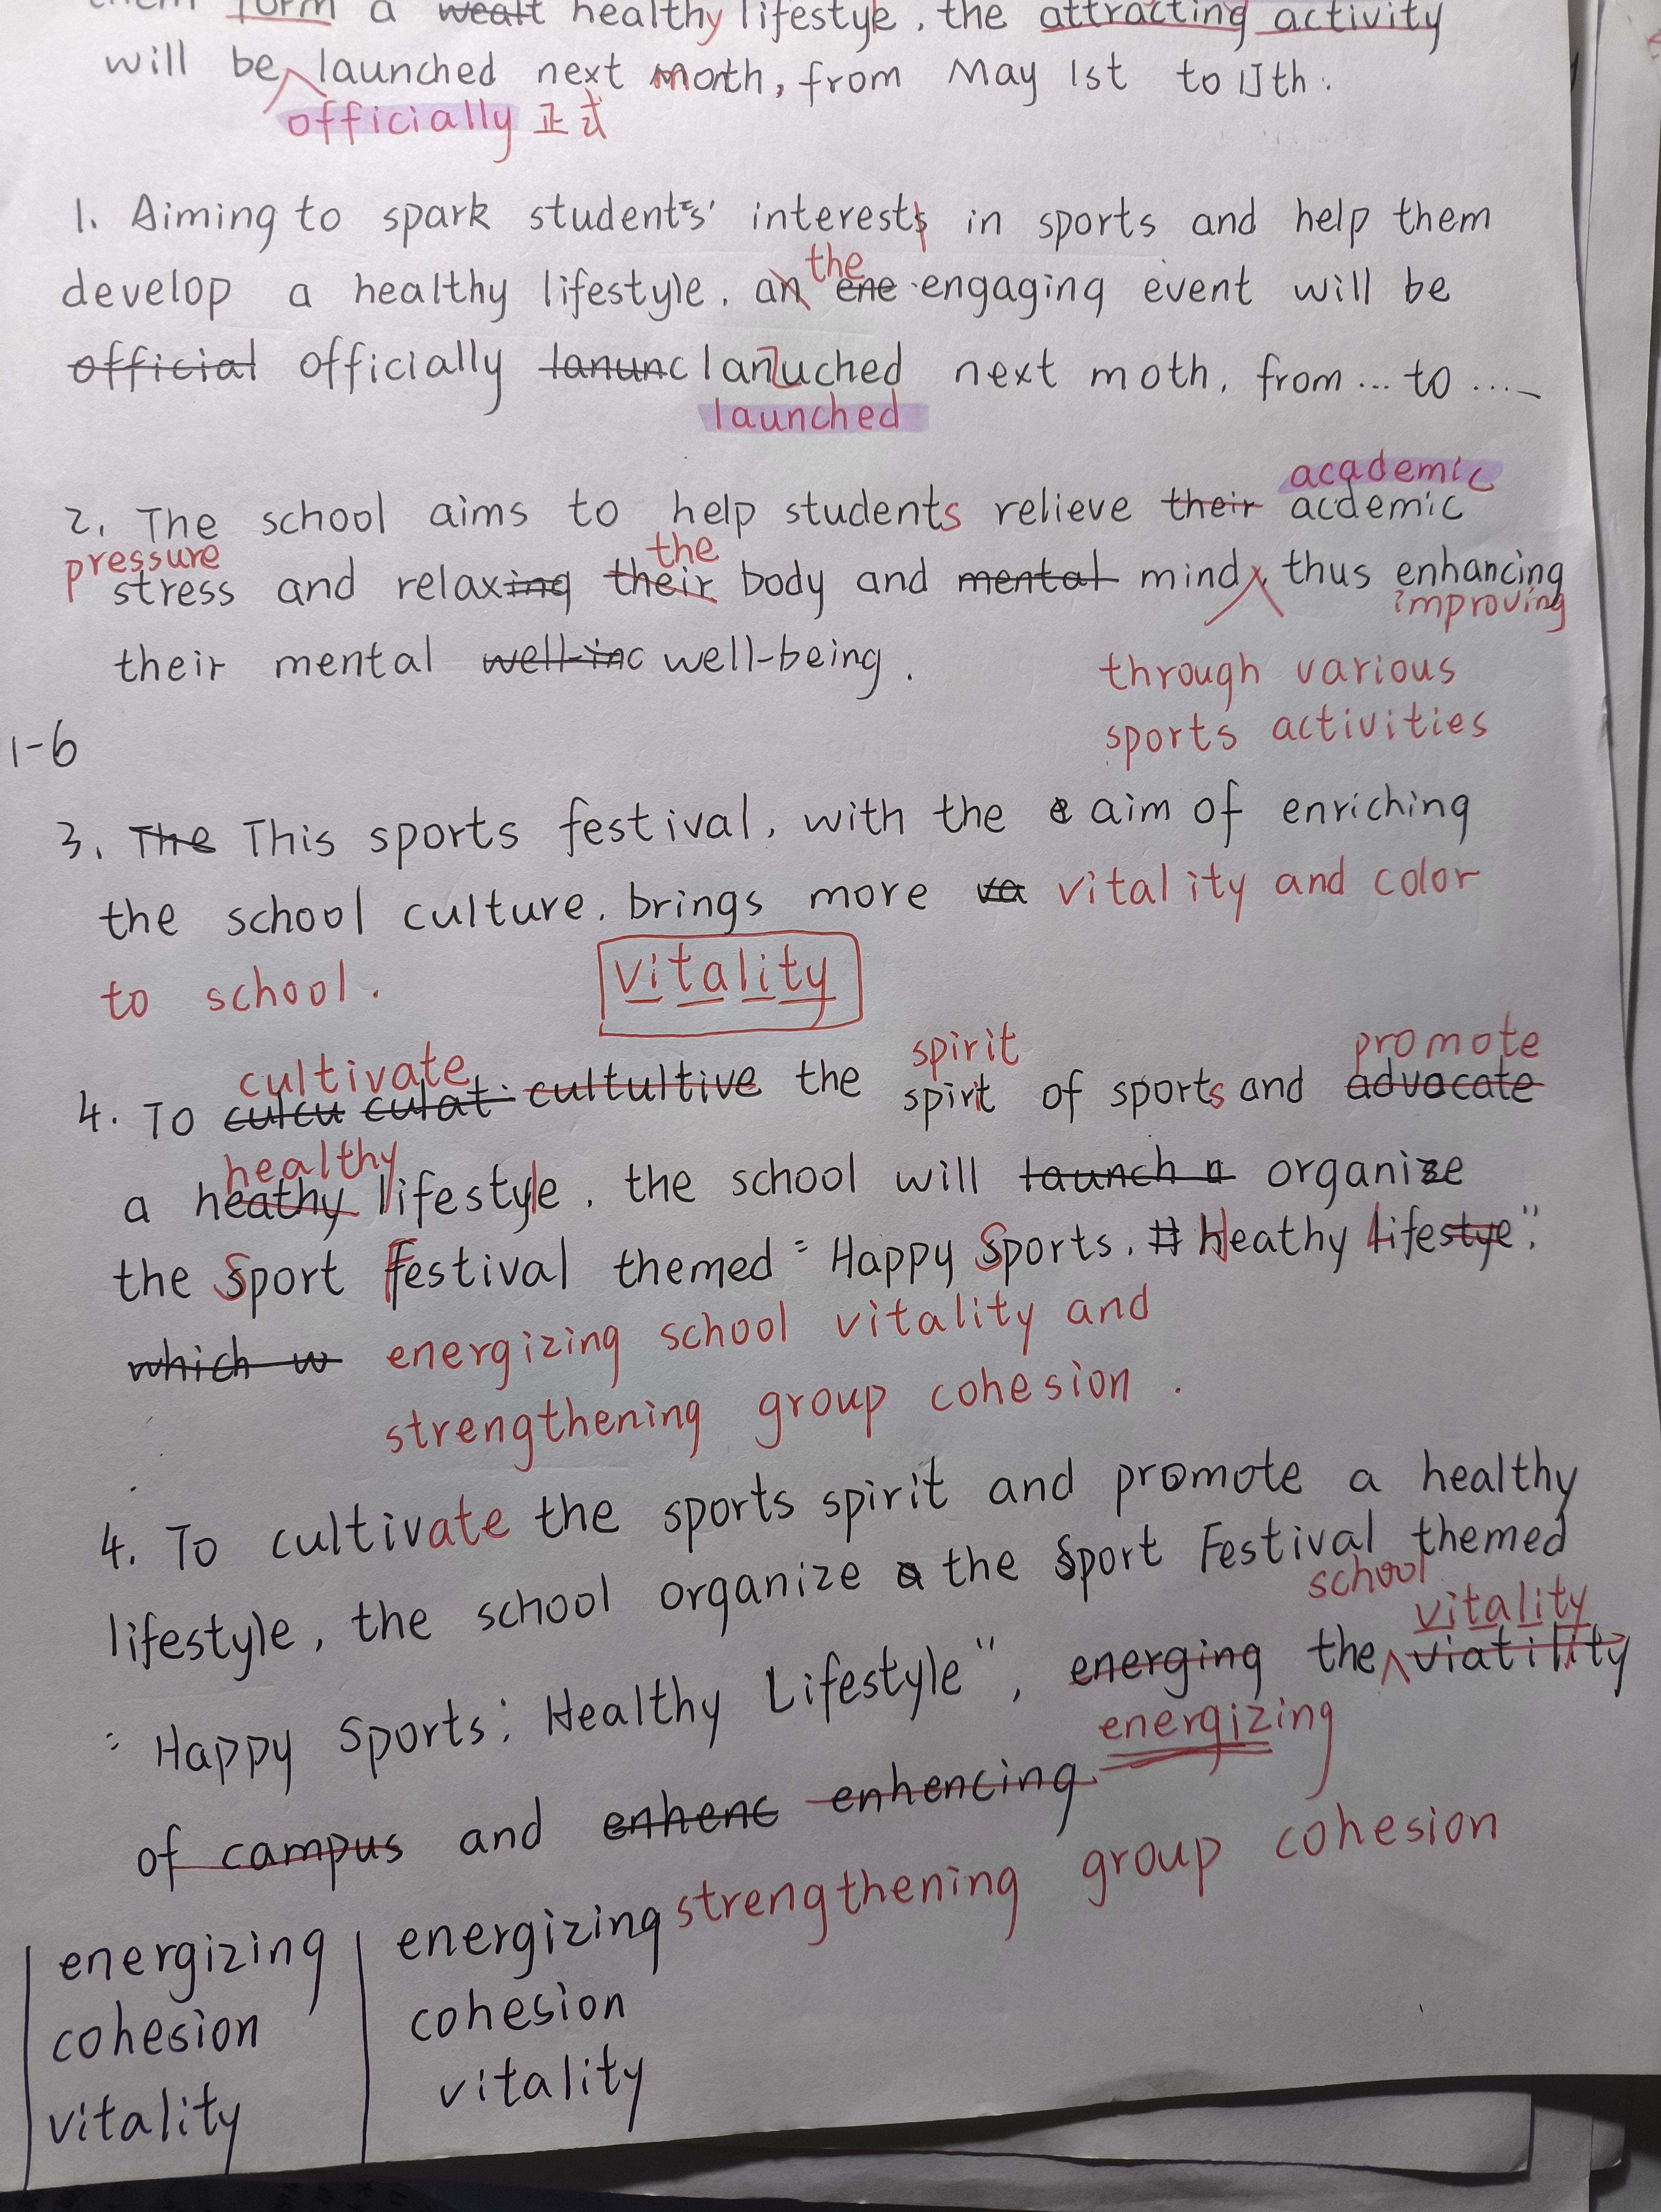 form a wealt healthy lifestyle, the attracting activity
will be launched next month, from May 1st to
officially 正式
1. Aiming to spark students' interests in sports and help them
the
develop a healthy lifestyle, an ene engaging event will be
official officially lanunc lanuched next moth, from ... to ....
launched
academic
2. The school aims to help students relieve their acdemic
pressure
the
stress and relaxing their body and mental mind, thus enhancing
improving
their mental well-inc well-being.
through various
sports activities
1-6
3. The This sports festival, with the aim of enriching
the school culture, brings more va vitality and color
to school.
vitality
cultivate
spirit
promote
4. To culcu culat cultultive the spirit of sports and advocate
healthy
a heathy lifestyle, the school will launch a organize
the Sport Festival themed "Happy Sports, H Heathy Lifestye",
which w energizing school vitality and
strengthening group cohesion.
4. To cultivate the sports spirit and promote a healthy
lifestyle, the school organize a the Sport Festival themed
school
vitality
"Happy Sports: Healthy Lifestyle", energing the viatility
energizing
of campus and enhenc enhencing
strengthening group cohesion
energizing
cohesion
vitality
energizing
cohesion
vitality